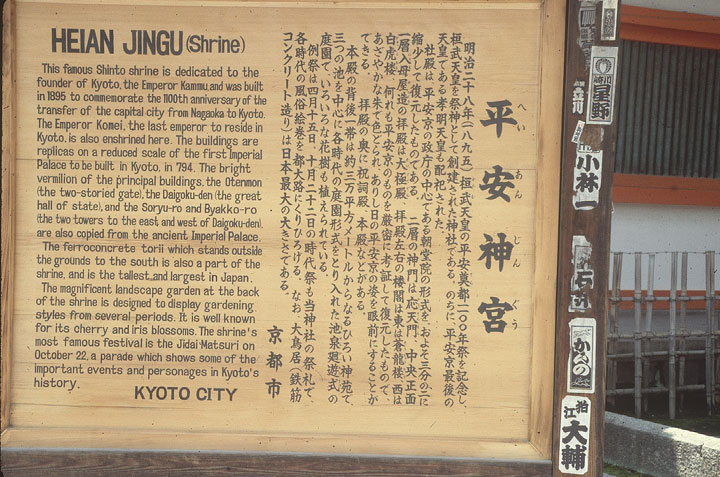 HEIAN JINGU (Shrine)
This famous Shinto shrine is dedicated to the
founder of Kyoto, the Emperor Kammu, and was built
in 1895 to commemorate the 1100th anniversary of the
transfer of the capital city from Nagaoka to Kyoto.
The Emperor Komei, the last emperor to reside in
Kyoto, is also enshrined here. The buildings are
replicas on a reduced scale of the first Imperial
Palace to be built in Kyoto, in '794. The bright
vermilion of the principal buildings, the Otenmon
(the two-storied gate), the Daigoku-den (the great
hall of state), and the Soryu-ro and Byakko-ro
(the two towers to the east and west of Daigoku-den),
are also copied from the ancient Imperial Palace.
The ferroconcrete torii which stands outside
the grounds to the south is also a part of the
shrine, and is the tallest and largest in Japan.
The magnificent landscape garden at the back
of the shrine is designed to display gardening
styles from several periods. It is well known
for its cherry and iris blossoms. The shrine's
most famous festival is the Jidai-Matsuri on
October 22, a parade which shows some of the
important events and personages in Kyoto's
history.
KYOTO CITY
平安神宮
へいあんじんぐう
明治二十八年（一八九五）桓武天皇の平安奠都一一〇〇年祭を記念し、
桓武天皇を祭神として創建された神社である。のちに平安京最後の
天皇である孝明天皇も配祀された。
社殿は、平安京の政庁の中心である朝堂院の形式を、およそ三分の二に
縮少して復元したものである。 二層の神門は応天門、中央正面
一層入母屋造の拝殿は大極殿、拝殿左右の楼閣は東は蒼龍楼、西は
白虎楼、何れも平安京のものを厳密に考証して復元したもので、
あざやかな朱で色どられ、ありし日の平安京の姿を眼前にすることが
できる。 拝殿の奥に祝詞殿、本殿などがある。
本殿の背後一帯は約三万平方メートルからなるひろい神苑で、
三つの池を中心に各時代の庭園形式をとり入れた池泉廻遊式の
庭園で、いろいろな花樹も植えられている。
例祭は四月十五日、十月二十二日の時代祭も当神社の祭礼で、
各時代の風俗絵巻を都大路にくりひろげる。なお、大鳥居（鉄筋
コンクリート造り）は日本最大の大きさである。
京都市
星野
立川
小林一
かんの
狛江
大輔